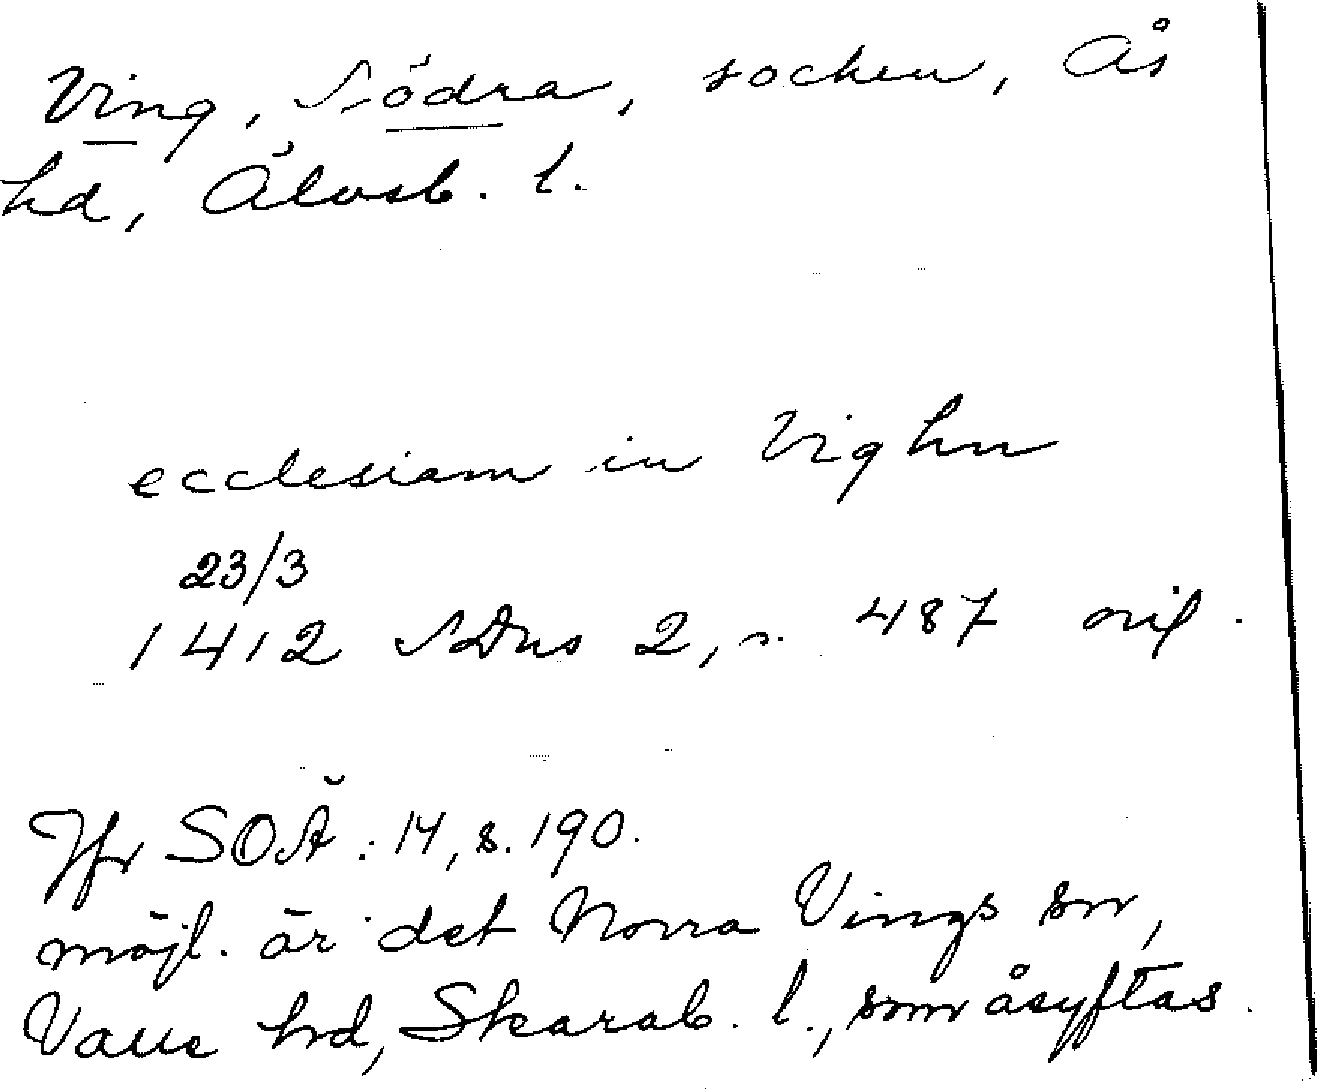 Ving, Södra, socken, Ås
hd, Älvsb. l.
ecclesiam in Vighn
23/3
1412 SDns 2, s. 487 nil.
Jfr SOÄ: 14, s. 190.
möjl. är det Norra Vings sn,
Valle hd, Skarab. l., som åsyftas.